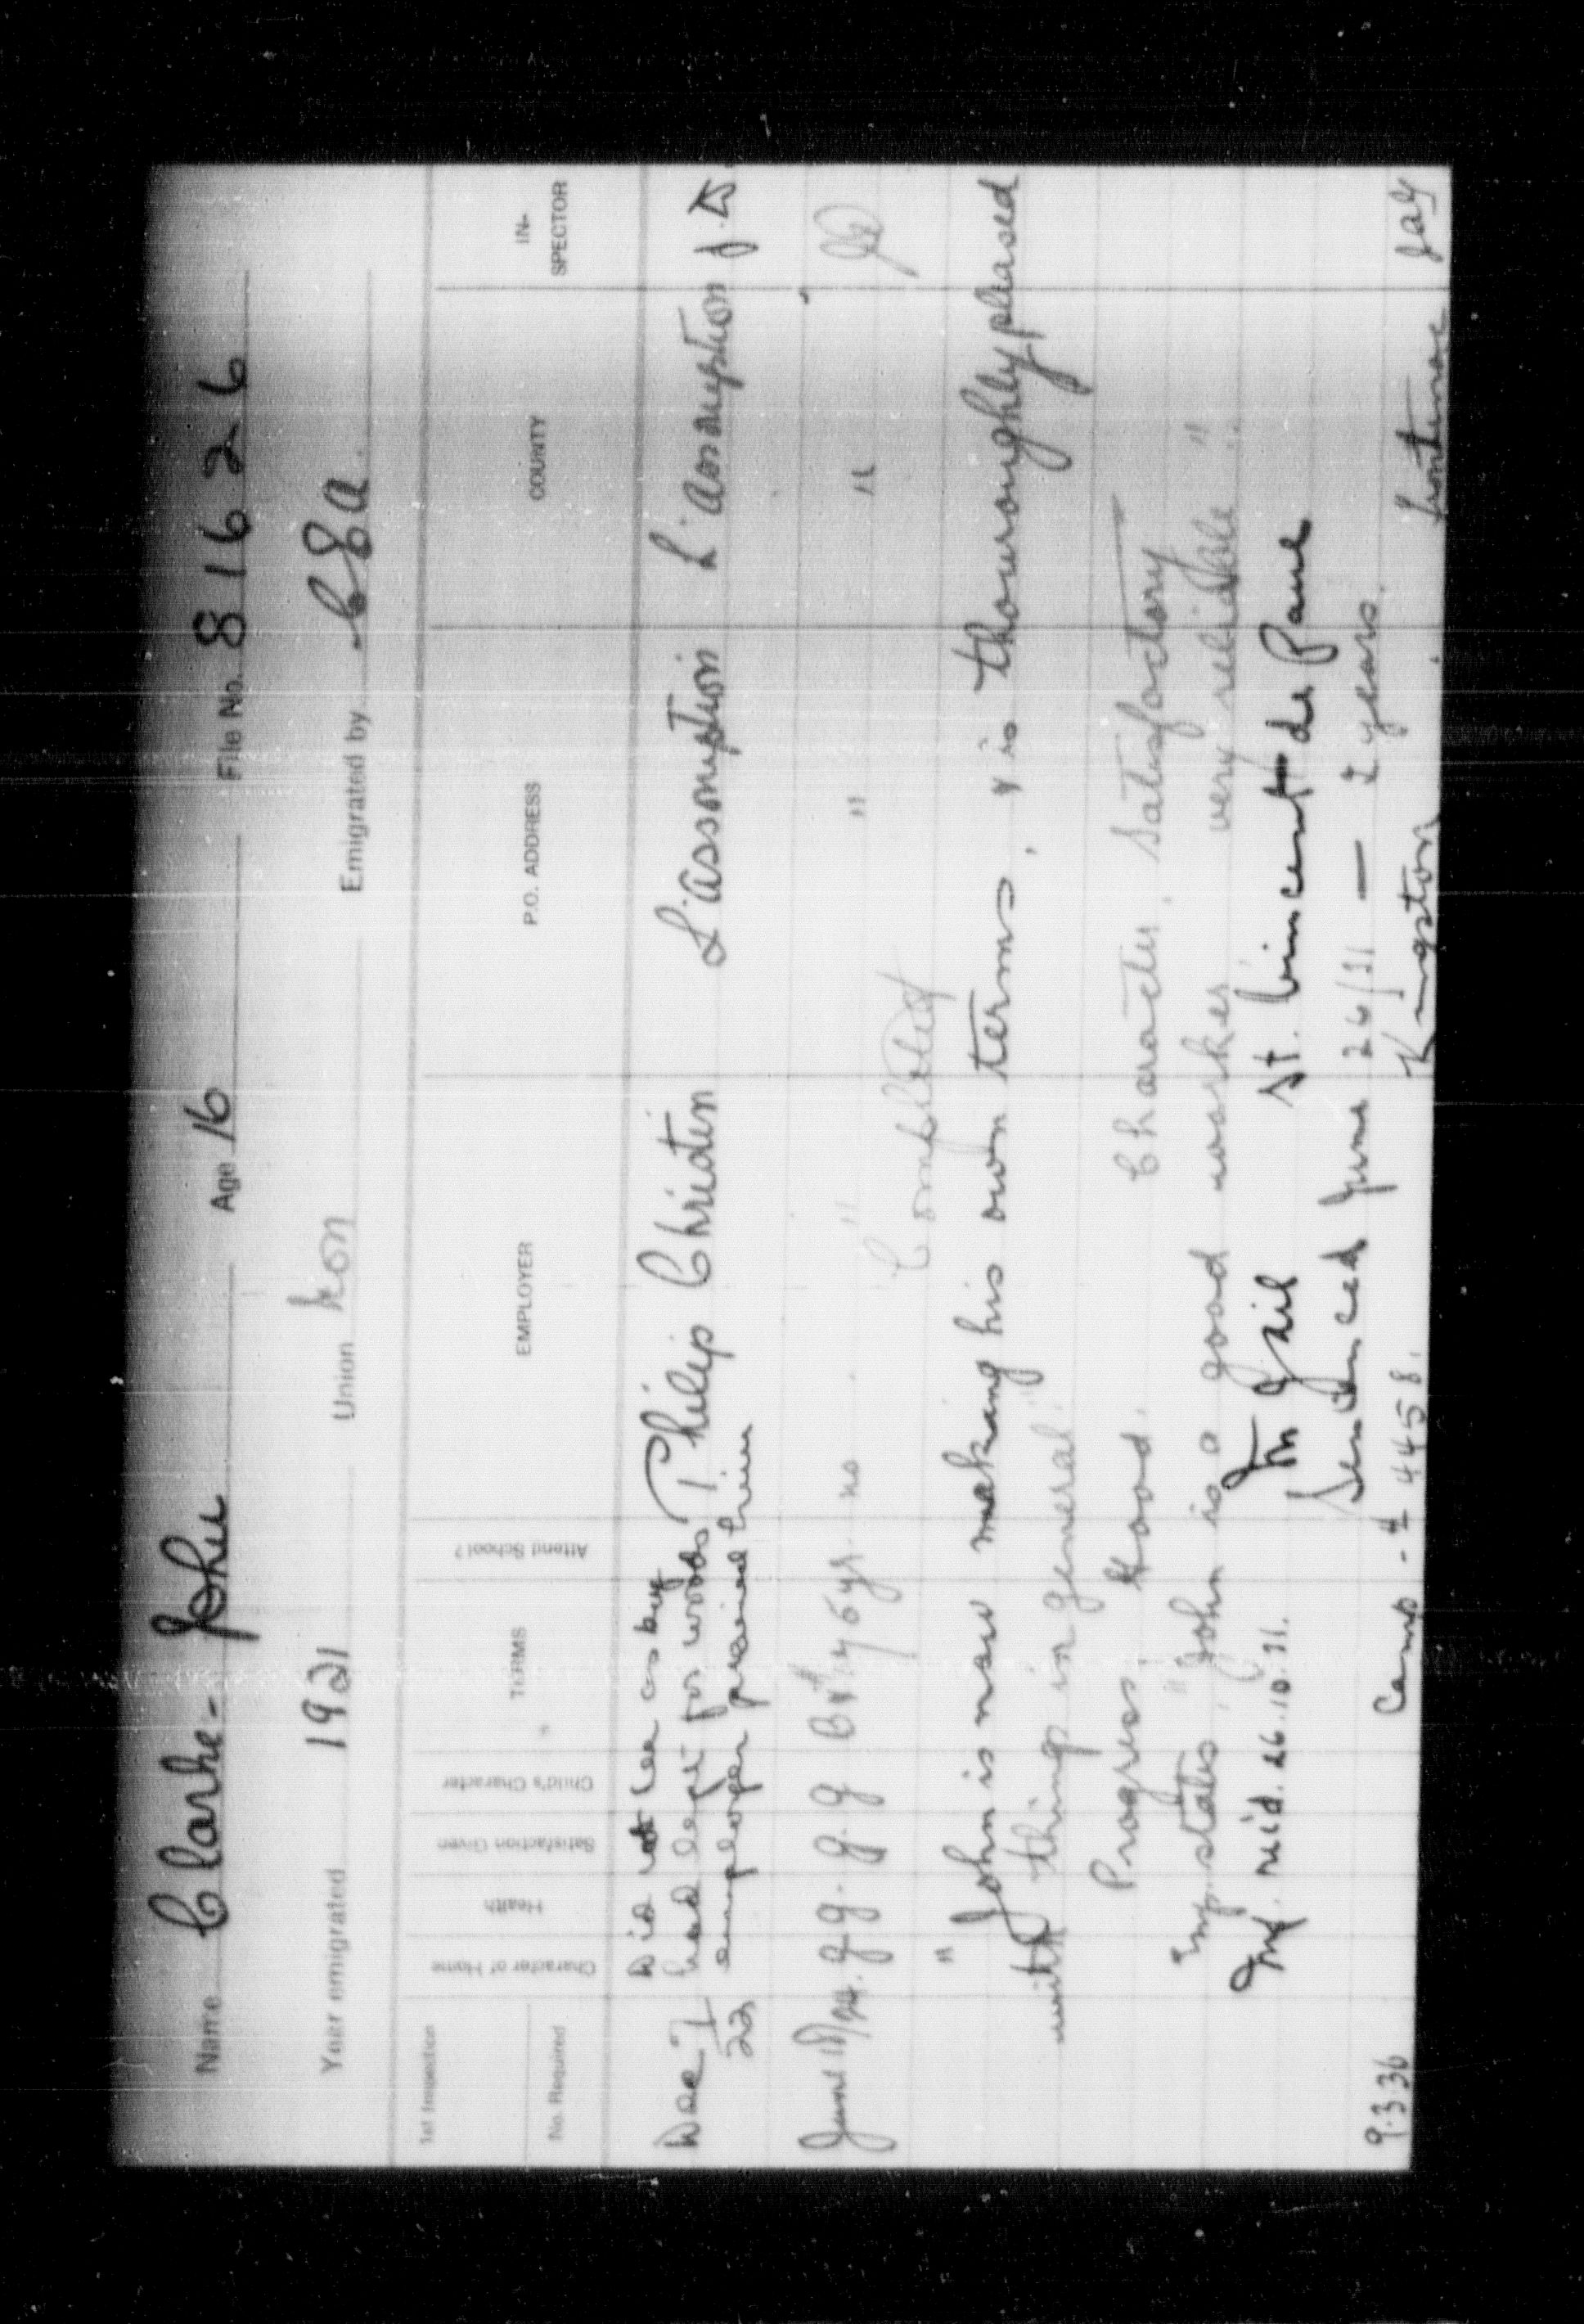 Name Clarke - John Age 16 File No. 81626
Year emigrated 1921 Union Non Emigrated by C E A.
1st Inspection
No. Required
Character of Home
Health
Satisfaction Given
Child's Character
TERMS
Attend School?
EMPLOYER
P.O. ADDRESS
COUNTY
IN-
SPECTOR
Dec 7 Did not see as boy
22 had left for woods Philip Chrietin L'assomption L'assomption
employer praised him
June 18/24. g g. g. g yr no " " "
Completed
" John is now making his own terms, & is thouroughly pleased
with things in general."
Progress. Good. Character. Satisfactory
Emp. states, "John is a good worker very reliable."
Inf. reid. 26.10.31. In Jail St. Vincent de Paul
Sentenced June 26/31 — 2 years.
9.3.36 Camp - 4458. Kingston. Frontenac